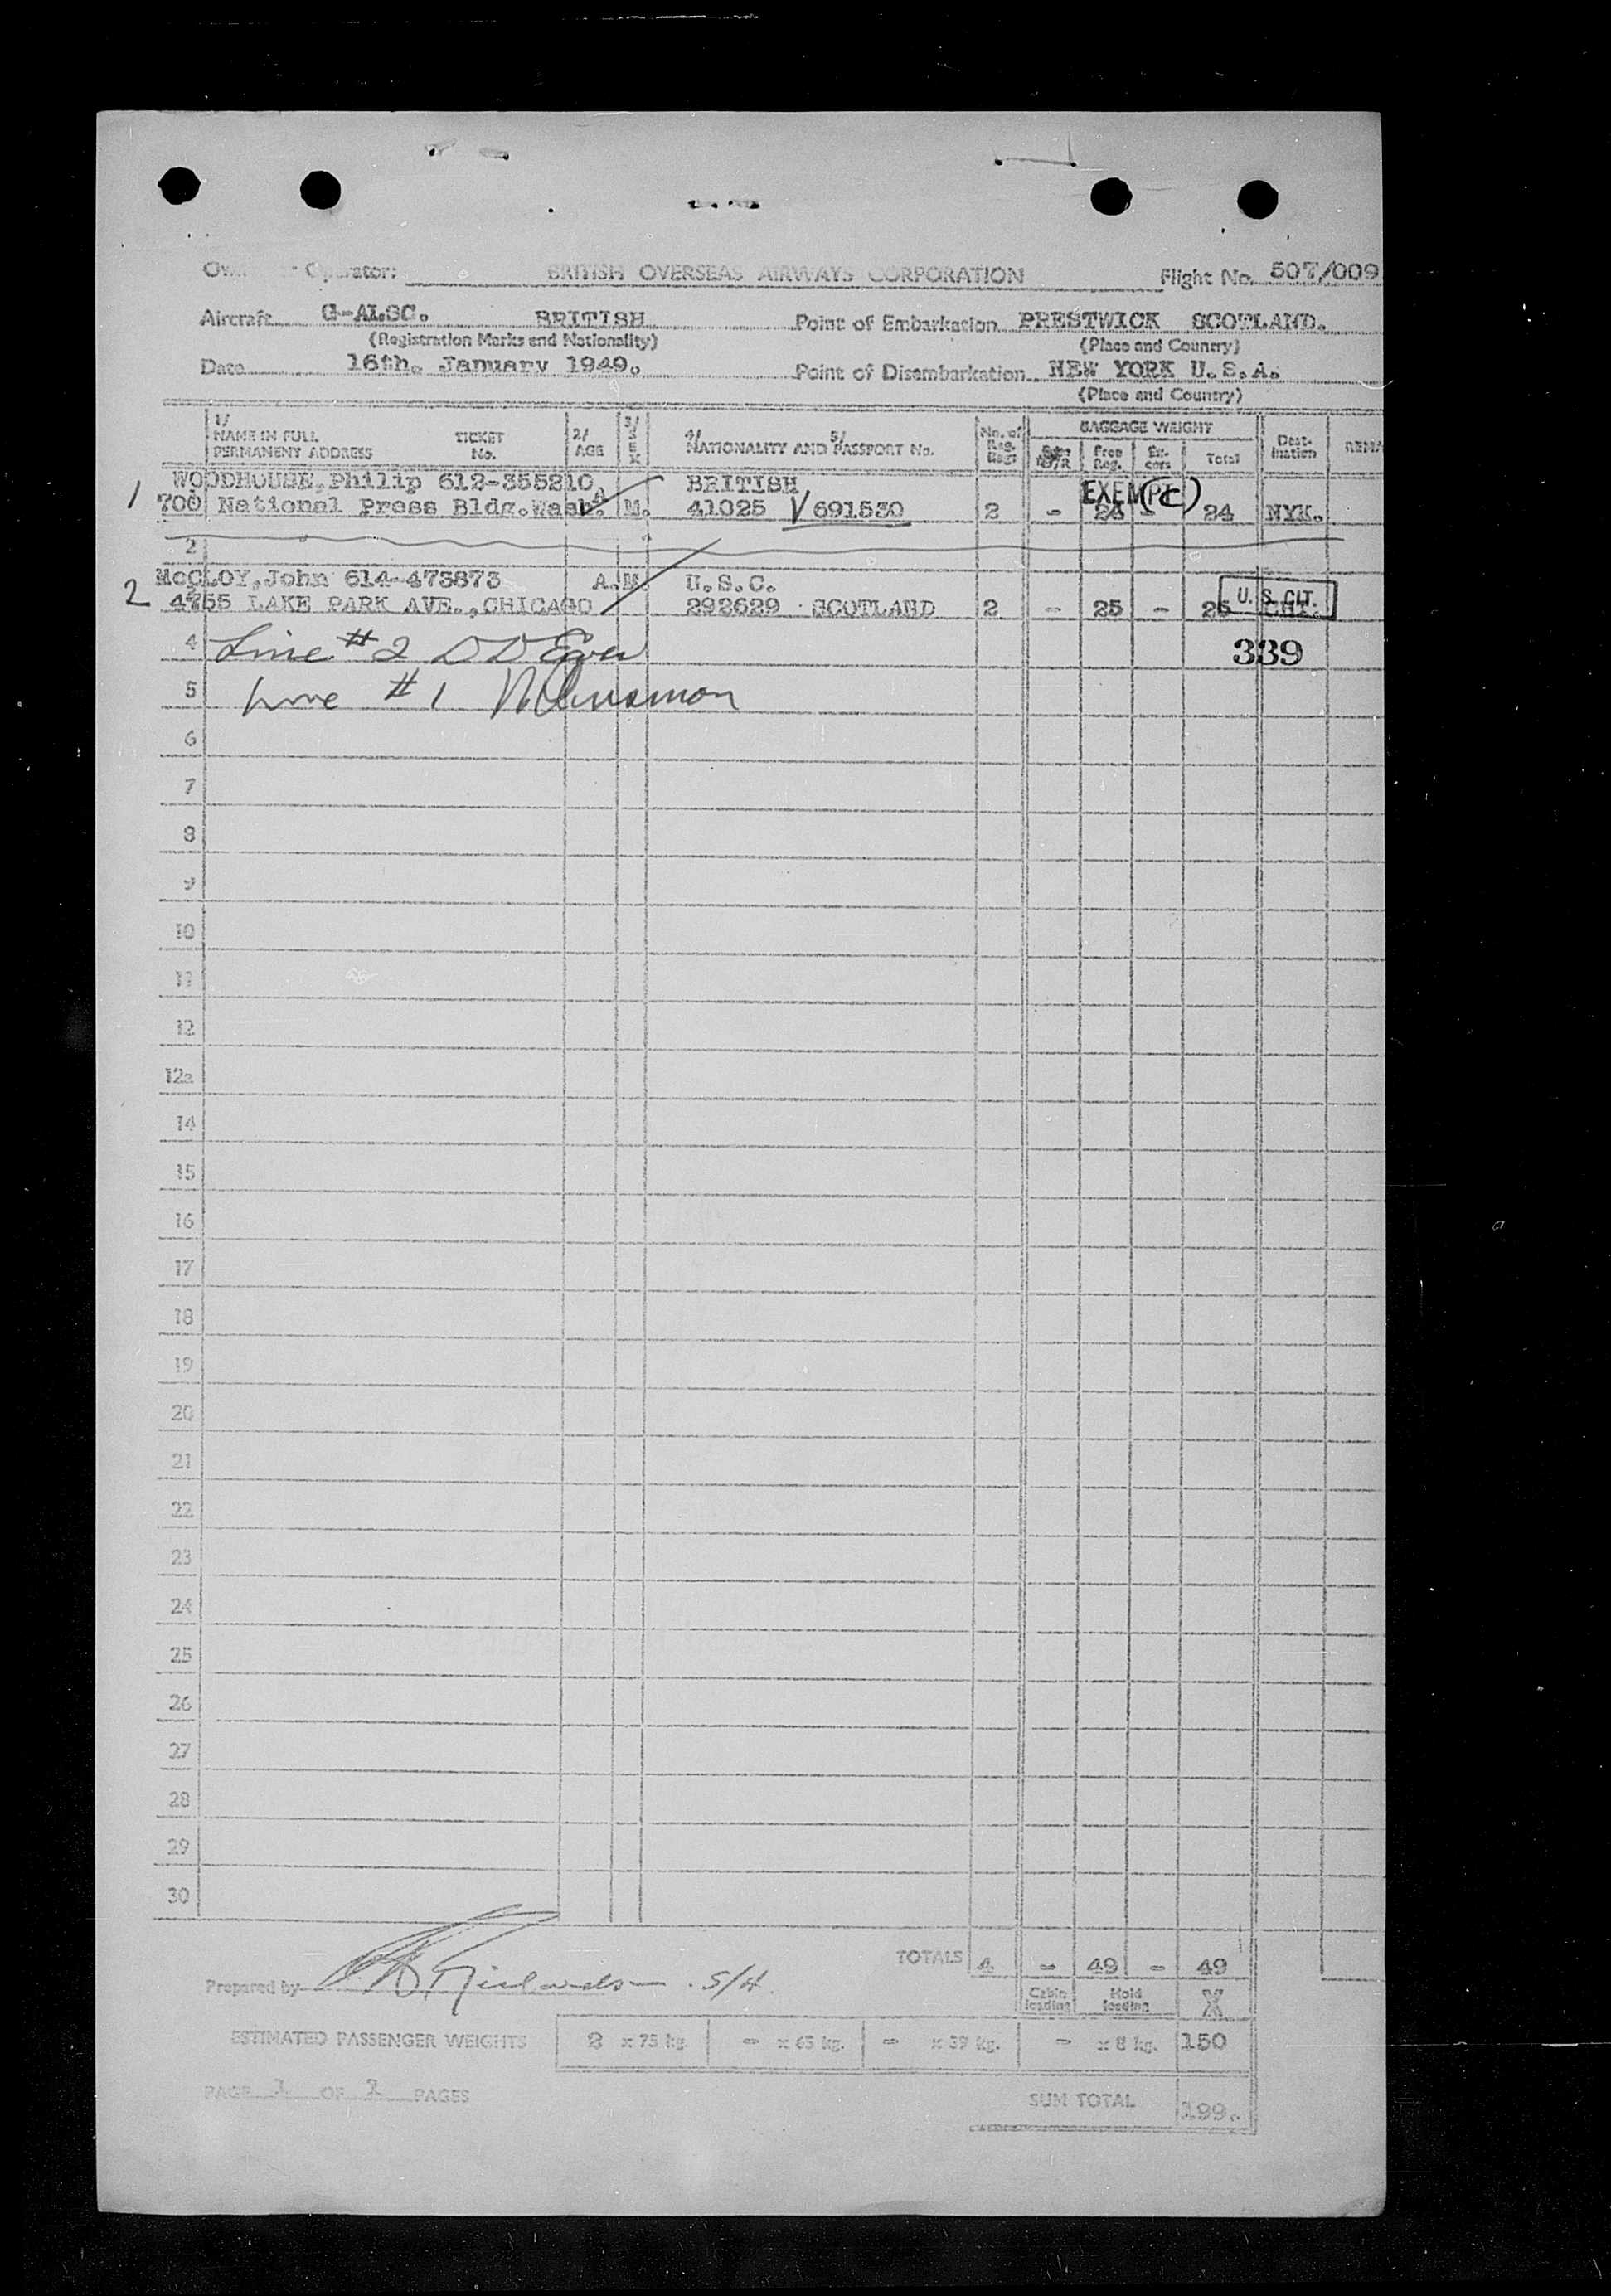 Operator: BRITISH OVERSEAS AIRWAYS CORPORATION Flight No. 507/009
Aircraft G-ALSC. BRITISH Point of Embarkation PRESTWICK SCOTLAND.
(Registration Marks and Nationality) (Place and Country)
Date 16th. January 1949. Point of Disembarkation NEW YORK U.S.A.
(Place and Country)
1/ NAME IN FULL PERMANENT ADDRESS TICKET No. 2/ AGE 3/ SEX 4/ 5/ NATIONALITY AND PASSPORT No. No. of Reg. Bags BAGGAGE WEIGHT Free Reg. Ex-cess Total Dest-ination REMA
WOODHOUSE, Philip 612-355210 BRITISH EXEMPT (C)
1 700 National Press Bldg. Wash. A M. 41025 V 691530 2 - 24 - 24 NYK.
2
McCLOY, John 614-473873 A. M. U.S.C. U. S. CIT.
2 4755 LAKE PARK AVE., CHICAGO 292629 SCOTLAND 2 - 25 - 25
4 Line #2 339
5 Line #1
6
7
8
9
10
11
12
12a
14
15
16
17
18
19
20
21
22
23
24
25
26
27
28
29
30
TOTALS 4 - 49 - 49
Prepared by Richardson. S/H.
Cabin loading Hold loading X
ESTIMATED PASSENGER WEIGHTS 2 x 75 kg. - x 65 kg. - x 39 kg. - x 8 kg. 150
PAGE 1 OF PAGES SUM TOTAL 199.